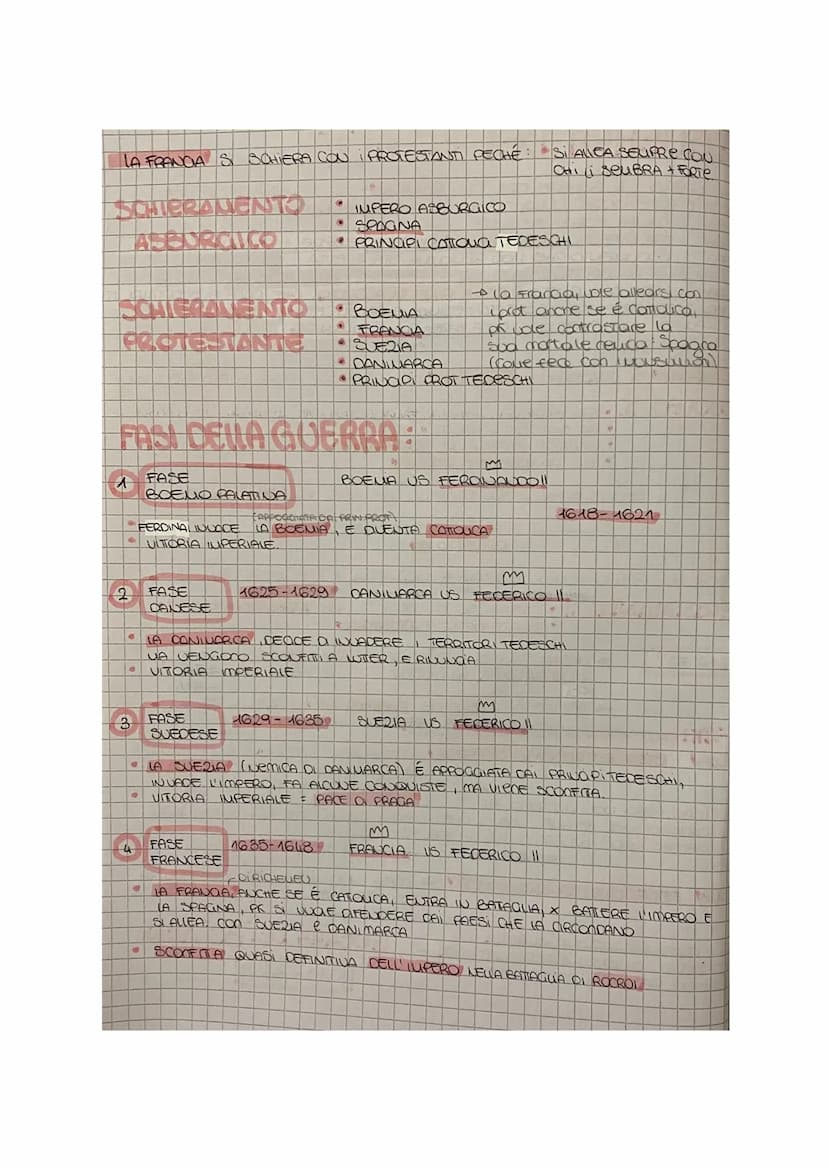 LA FRANCIA SI SCHIERA CON I PROTESTANTI PECHÉ: • SI ALLEA SEMPRE CON
CHI li SEMBRA + FORTE
SCHIERAMENTO
ASBURGICO
• IMPERO ASBURGICO
• SPAGNA
• PRINCIPI CATTOLICI TEDESCHI
SCHIERAMENTO
PROTESTANTE
• BOEMIA
• FRANCIA
• SVEZIA
• DANIMARCA
• PRINCIPI PROT TEDESCHI
→ la Francia, vole allearsi con
i prot anche se è cattolica,
pk vole contrastare la
sua mortale nemica: Spagna
(come fece con i musulmani)
FASI DELLA GUERRA:
1 FASE
BOEMO PALATINA
BOEMIA VS FERDINANDO II
1618-1621
(APPOGGIATA DAI PRIN PROT)
• FERDINA. INVADE LA BOEMIA, E DIVENTA CATTOLICA
• VITTORIA IMPERIALE.
2 FASE
DANESE
1625-1629 DANIMARCA VS FEDERICO II
• LA DANIMARCA, DECIDE DI INVADERE I TERRITORI TEDESCHI
MA VENGONO SCONFITTI A LUTTER, E RINUNCIA
• VITTORIA IMPERIALE
3 FASE
SVEDESE
1629-1635 SVEZIA VS FEDERICO II
• LA SVEZIA (NEMICA DI DANIMARCA) É APPOGGIATA DAI PRINCIPI TEDESCHI,
INVADE L'IMPERO, FA ALCUNE CONQUISTE, MA VIENE SCONFITTA.
• VITTORIA IMPERIALE = PACE DI PRAGA
4 FASE
FRANCESE
1635-1648 FRANCIA VS FEDERICO II
DI RICHELIEU
• LA FRANCIA, ANCHE SE É CATTOLICA, ENTRA IN BATTAGLIA, X BATTERE L'IMPERO E
LA SPAGNA, PK SI VUOLE DIFENDERE DAI PAESI CHE LA CIRCONDANO
SI ALLEA CON SVEZIA E DANIMARCA
• SCONFITTA QUASI DEFINITIVA DELL'IMPERO NELLA BATTAGLIA DI ROCROI